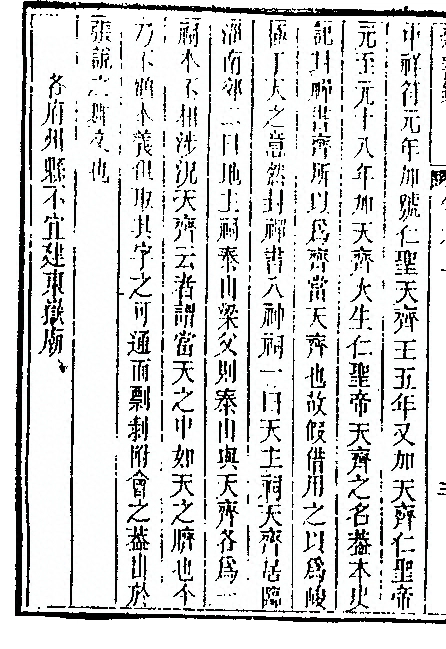 中祥符元年加號仁聖天齊王五年又加天齊仁聖帝
元至元十八年加天齊大生仁聖帝天齊之名蓋本史
記封禪書齊所以爲齊當天齊也故假借用之以爲峻
極于天之意然封禪書八神祠一曰天主祠天齊居臨
淄南郊二曰地主祠泰山梁父則泰山與天齊各爲一
祠本不相涉況天齊云者謂當天之中如天之臍也今
乃不顧本義但取其字之可通而剽剝附會之蓋出於
張說之撰文也
各府州縣不宜建東嶽廟